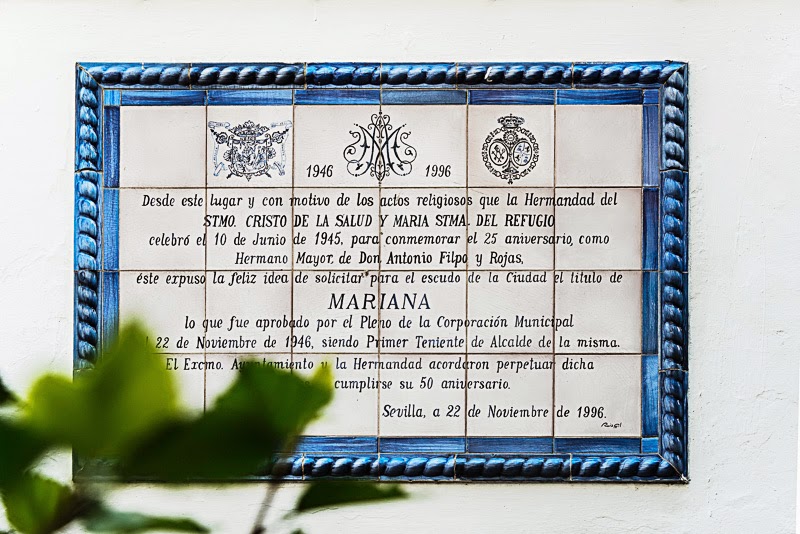 1946 1996
Desde este lugar y con motivo de los actos religiosos que la Hermandad del
STMO. CRISTO DE LA SALUD Y MARIA STMA. DEL REFUGIO
celebró el 10 de Junio de 1945, para conmemorar el 25 aniversario, como
Hermano Mayor, de Don Antonio Filpo y Rojas,
éste expuso la feliz idea de solicitar para el escudo de la Ciudad el título de
MARIANA
lo que fue aprobado por el Pleno de la Corporación Municipal
22 de Noviembre de 1946, siendo Primer Teniente de Alcalde de la misma.
El Excmo. Ayuntamiento y la Hermandad acordaron perpetuar dicha
cumplirse su 50 aniversario.
Sevilla, a 22 de Noviembre de 1996.